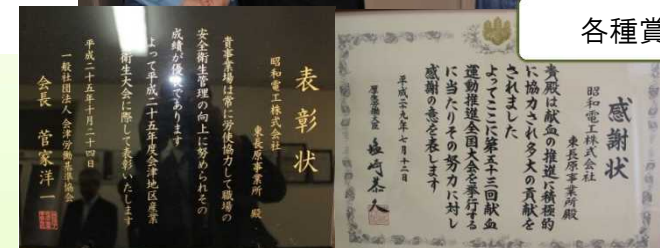 各種賞
表彰状
昭和電工株式会社
東長原事業所 殿
貴事業場は常に労使協力して職場の
安全衛生管理の向上に努められその
成績が優秀であります
よって平成二十五年度会津地区産業
衛生大会に際して表彰いたします
平成二十五年十月二十四日
一般社団法人会津労働基準協会
会長 菅家洋一
感謝状
昭和電工株式会社
東長原事業所殿
貴殿は献血の推進に積極的
に協力され多大の貢献を
されました
よってここに第五十三回献血
運動推進全国大会を挙行する
に当たりその努力に対し
感謝の意を表します
平成二十九年七月十二日
厚生労働大臣 塩崎恭久